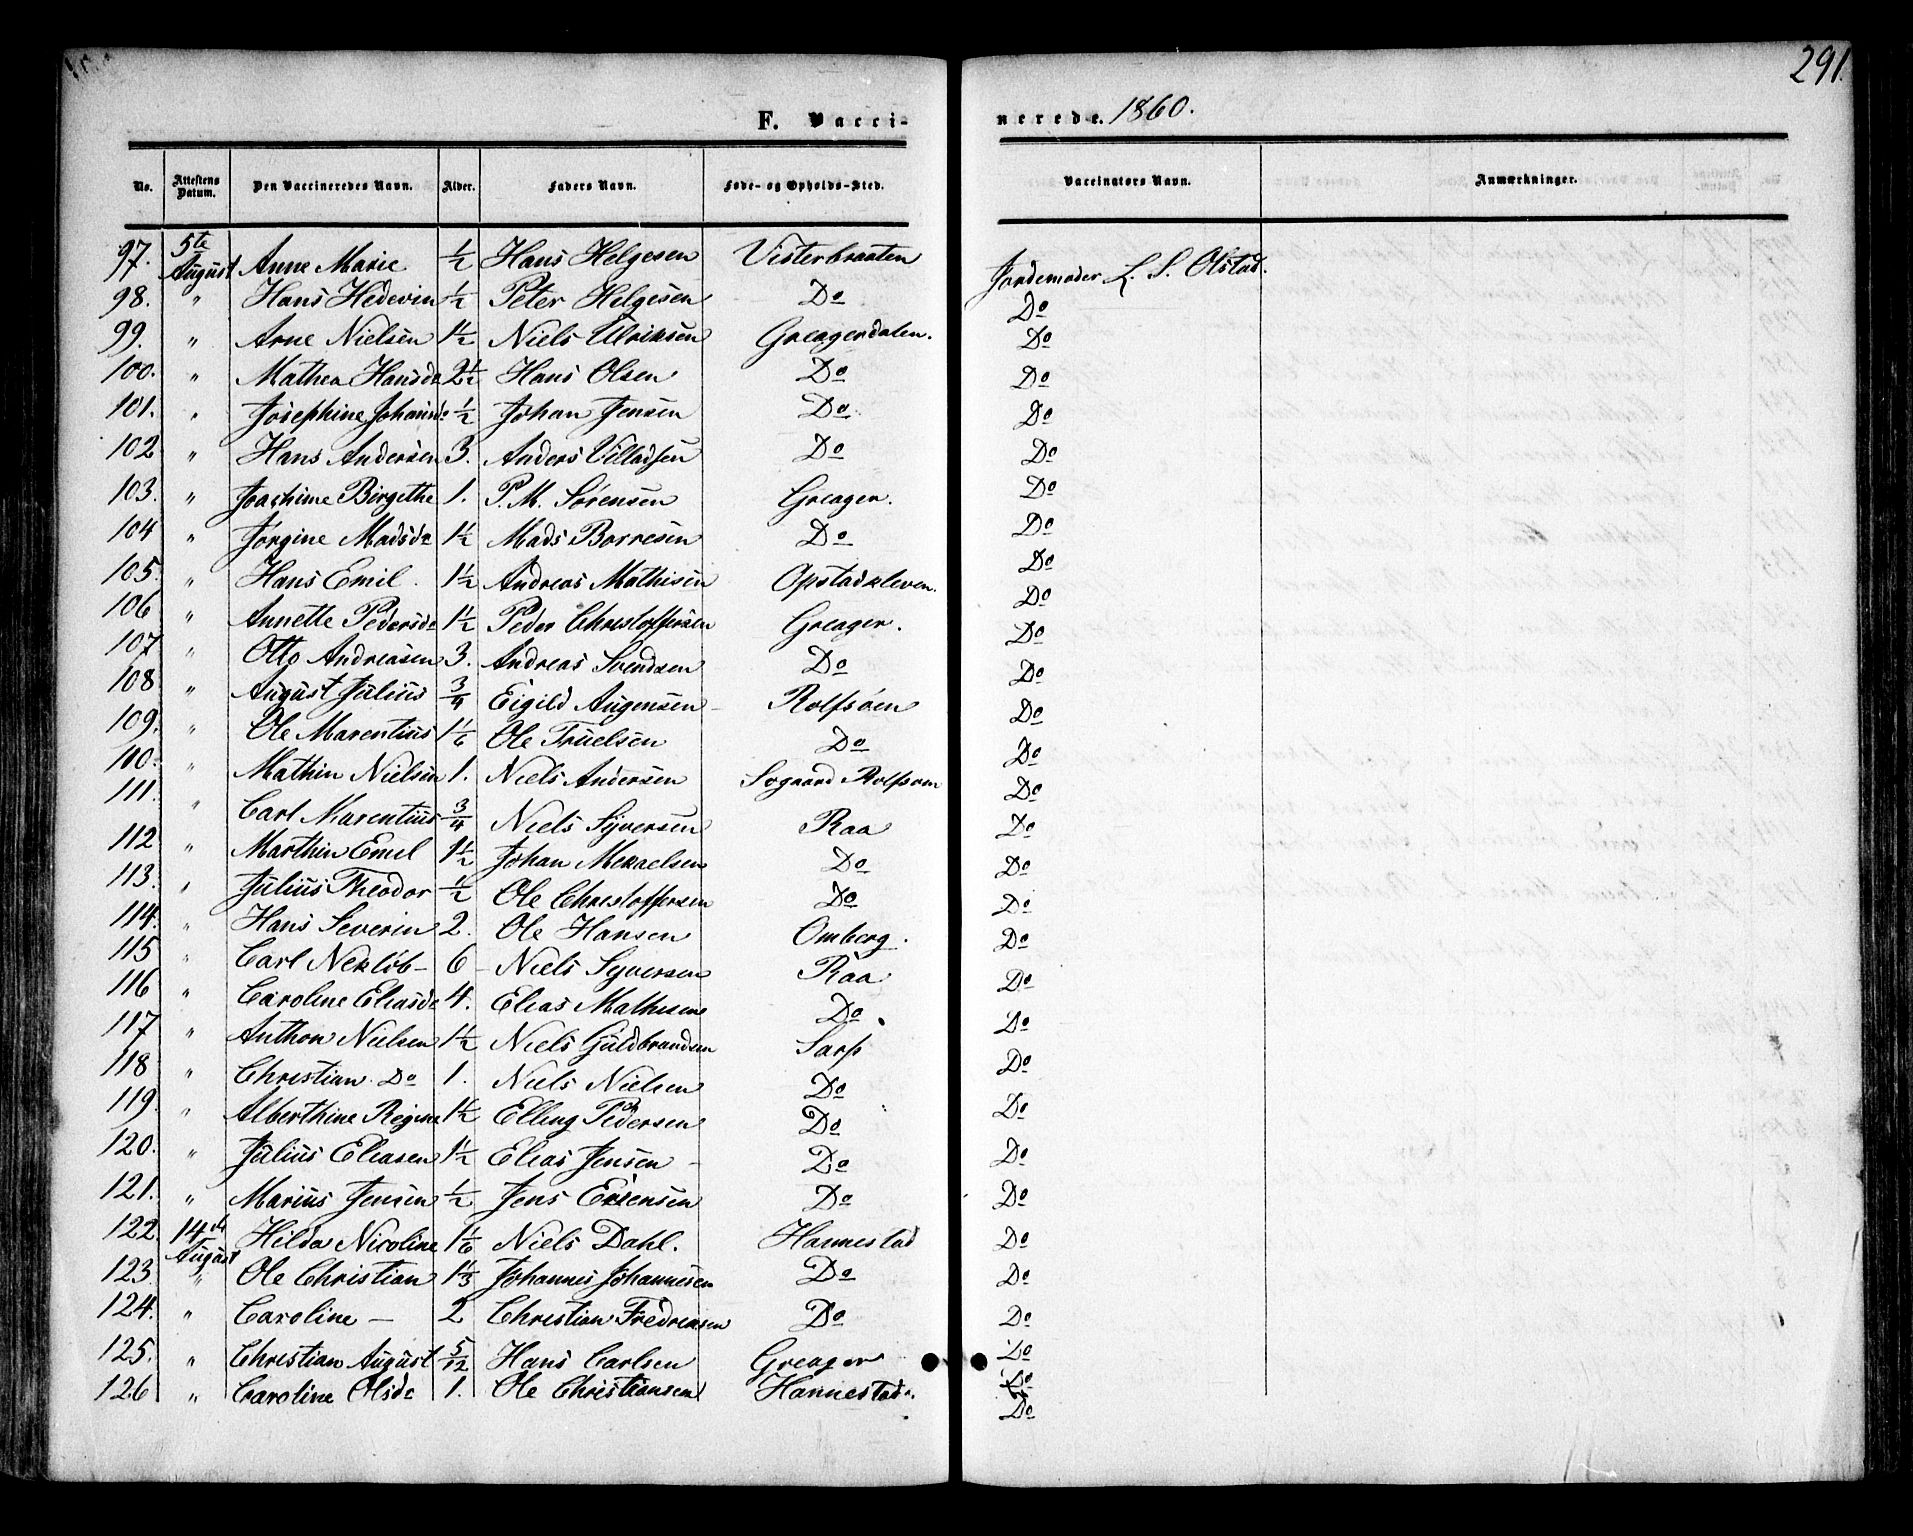 291.
F. Vacci- nerede. 1860.
No. Attestens Datum. Den Vaccineredes Navn. Alder. Faders Navn. Føde- og Opholds-Sted. Vaccinators Navn. Anmærkninger.
97. 5te August Anne Marie 1/2 Hans Helgesen Visterbraaten Jordemoder L. S. Olstad.
98. " Hans Hedevin 1/2 Peter Helgesen Do Do
99. " Arne Nielsen 1 1/2 Niels Ulriksen Greagerdalen. Do
100. " Mathea Hansdr 2 1/2 Hans Olsen Do Do
101. " Josephine Johansdr 1/2 Johan Jensen Do Do
102 " Hans Andersen 3. Anders Villadsen Do Do
103. " Joachime Birgethe 1. P. M. Sørensen Greager. Do
104 " Jørgine Madsdr 1 1/2 Mads Borresen Do Do
105. " Hans Emil. 1 1/2 Andreas Mathisen Opstadkleven. Do
106 " Annette Pedersdr 1 1/2 Peder Christoffersen Greager. Do
107 " Otto Andreasen 3. Andreas Svendsen Do Do
108 " August Julius 3/4 Eigild Augensen Rolfsøen Do
109. " Ole Marentius 1 1/6 Ole Truelsen Do Do
110. " Mathin Nielsen 1. Niels Andersen Sogaard Rolfsøen Do
111. " Carl Marentius 3/4 Niels Syversen Raa Do
112 " Marthin Emil 1 1/2 Johan Mekaelsen Do Do
113. " Julius Theodor 1/2 Ole Christoffersen Do Do
114. " Hans Severin 2. Ole Hansen Omberg. Do
115 " Carl Nekløb 6 Niels Syversen Raa Do
116 " Caroline Eliasdr 4. Elias Mathisen Do. Do
117 " Anthon Nielsen 1 1/2 Niels Guldbrandsen Sarp Do
118 " Christian Do 1. Niels Nielsen Do Do
119. " Alberthine Regine 1 1/2 Elling Pedersen Do Do
120. " Julius Eliasen 1 1/2 Elias Jensen Do Do
121. " Marius Jensen 1/2 Jens Ericsen Do Do
122. 14de August Hilda Nicoline 1 1/6 Niels Dahl. Hannestad Do
123. " Ole Christian 1 1/3 Johannes Johannesen Do Do
124. " Caroline — 2 Christian Fredriksen Do Do
125. " Christian August 5/12 Hans Carlsen Greager Do
126 " Caroline Olsdr 1. Ole Christiansen Hannestad. Do
Do